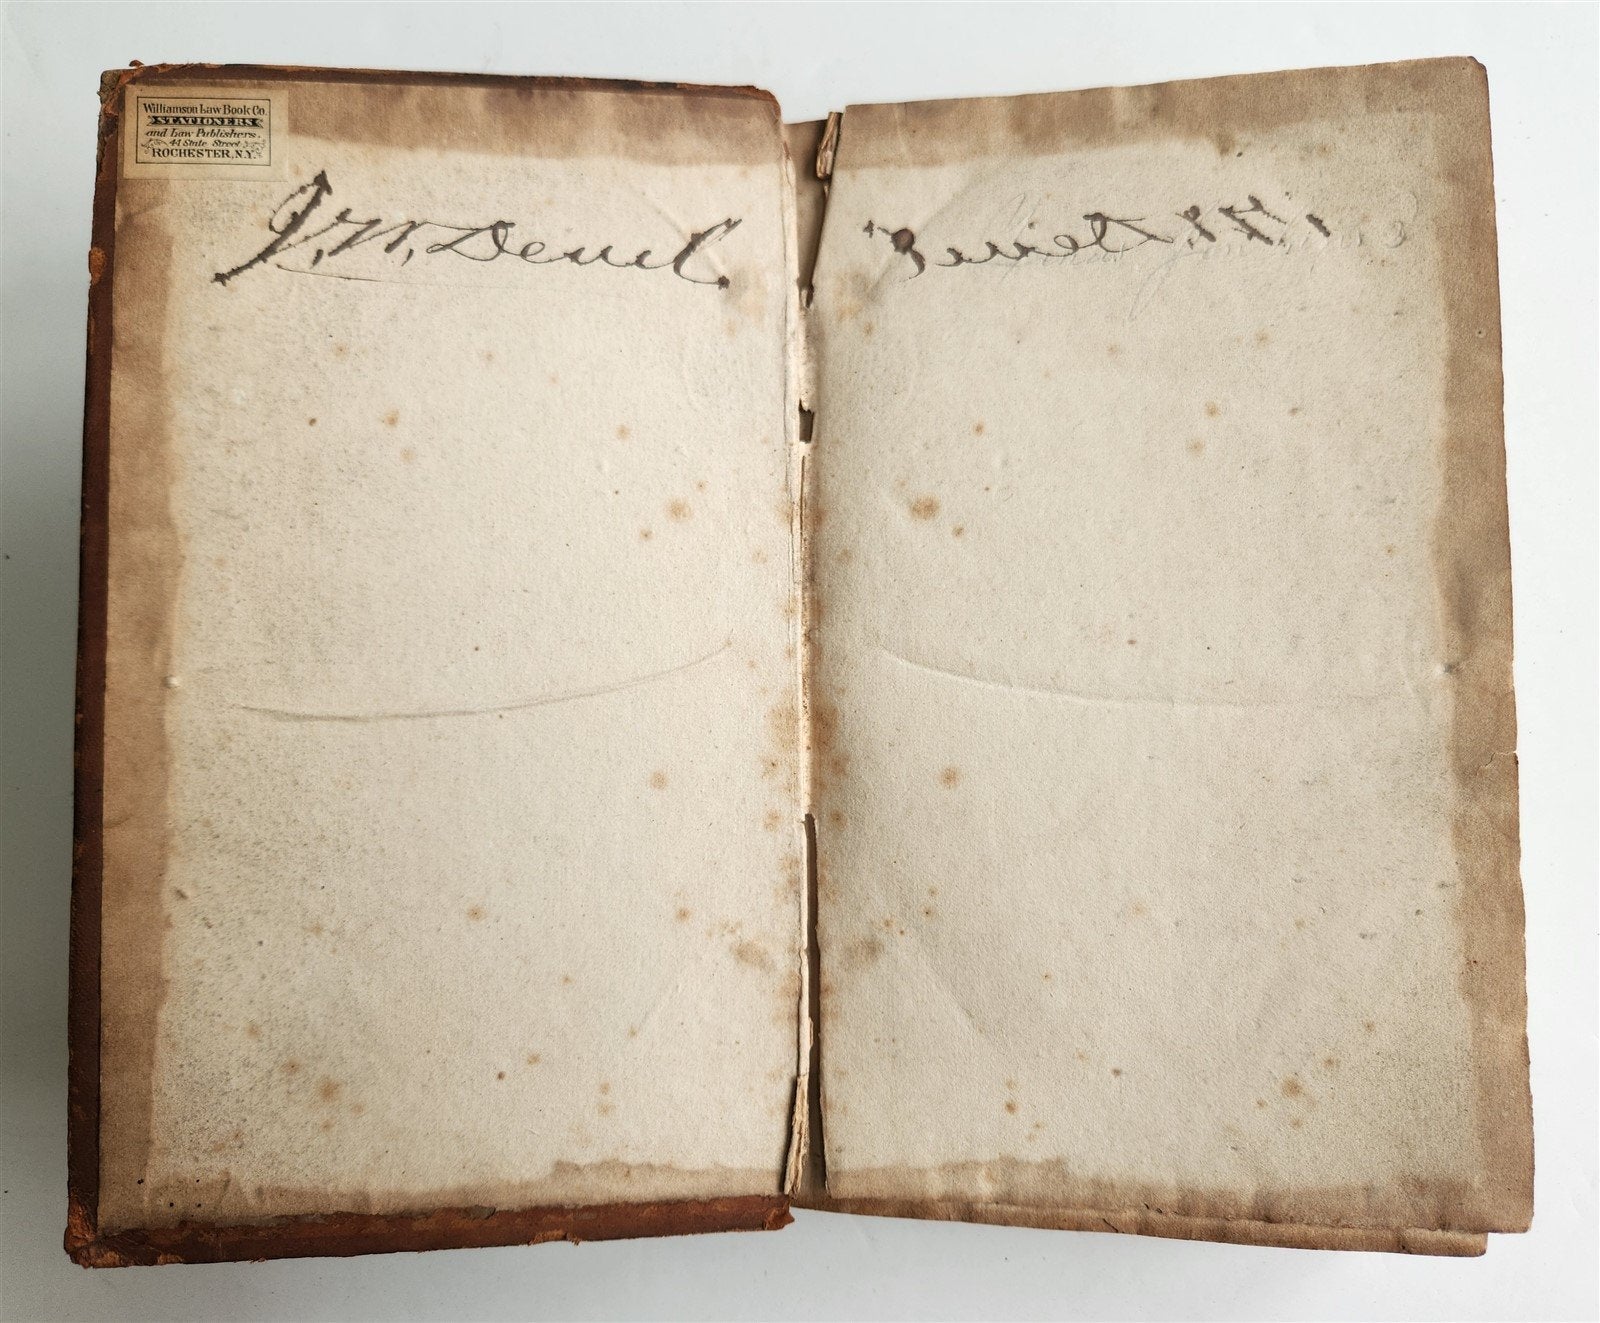 Williamson Law Book Co.
STATIONERS
and Law Publishers.
44 State Street
ROCHESTER, N.Y.
J. W. Deuel.